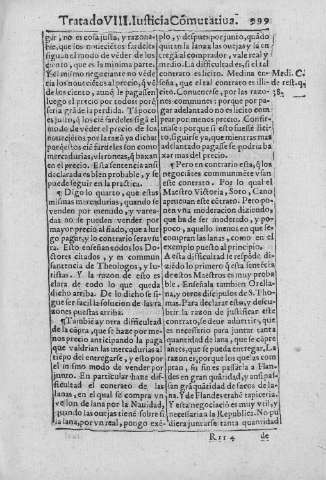 Tratado VIII. Iusticia Cõmutatiua. 999
guir, no es cosa justa, y razona-
ble, que los nouecientos fardeles
siguan el modo de véder de los
ciento, que es la minima parte.
Y si el mismo negociante no véde
cia los nouecientos al precio, q̃ vé
de los ciento, aunq̃ le pagassen
luego el precio por todos pare-
seria grãde la perdida. Tãpoco
es justo, q̃ los ciẽ fardeles sigã el
modo de véder el precio de los
nouecientos por la razõ ya dicha:
porq̃ estos ciẽ fardeles son como
mercadurias vltroneas, q̃ baxan
en el precio. Esta sentencia ansi
declarada es bien probable, y se
puede seguir en la practica.
¶ Digo lo quarto, que estas
mismas mercadurias, quando se
venden por menudo, y varea-
das no se pueden vender por
mayor precio al fiado, que a lue-
go pagar, y lo contrario sera vsu
ra. Esto enseñan todos los Do-
ctores citados, y es commun
sentencia de Theologos, y Iu-
ristas. Y la razon de esto es
clara de todo lo que queda
dicho arriba. De lo dicho se si-
gue ser facil la solucion de las ra
zones puestas arriba.
¶ Tambiẽ ay otra difficultad
de la cõpra, que se haze por me-
nos precio anticipando la paga
que valdrian las mercadurias al
tiẽpo del entregarse, y esto por
el mismo modo de vender por
junto. En particular haze dif-
ficultad el contrato de las
lanas, en el qual se compra vn
vellon de lana por la Nauidad,
quando las ouejas tiené sobre si
la lana, por vn real, pongo exẽ-
plo, y despues por junto, quãdo
quitan la lana a las ouejas y la en
tregã al comprador, vale real y
medio. La difficultad es, si el tal
contrato es licito. Medina en- Medi. C.
seña, que el tal contrato es illi- de rest. q.
cito. Conuencese, por las razo- 38.
nes communes: porque por pa-
gar adelantado no es licito com
prar por menos precio. Confir-
male: porque si esto fuesse lici-
to, siguese ya, que mientras mas
adelantado pagasse se podria ba
xar mas del precio.
¶ Pero en contrario esta, q̃ los
negociãtes communmẽte vsan
este contrato. Por lo qual el
Maestro Victoria, Soto, Cano
aprueuan este cõtrato. Pero po-
nen vna moderacion diziendo,
que ha de ser moderado, y po-
poco, aquello menos en que se
compran las lanas, como en el
exemplo puesto al principio.
A esta difficultad se respõde di-
ziẽdo lo primero q̃ esta sentẽcia
de estos Maestros es muy proba
ble. Enseñala tambien Orella-
na, y otros discipulos de S. Tho
mas. Para declarar esto, y descu-
brir la razon de justificar este
contrato, se deue aduertir, que
es necessario para juntar tanta
quantidad de lana, que le cõpre
antes, que se pueda entregar. La
razon es, porque los que las com
pran, su fin es passarla a Flan-
des en gran quãtidad, y ansi pas-
san grã quãtidad de sacos de la-
na. Y de Flandes traẽ tapiceria.
Y esta negociaciõ es muy vtil, y
necessaria a la Republica. No pu
diera juntarse tanta quantidad
Rrr 4 de